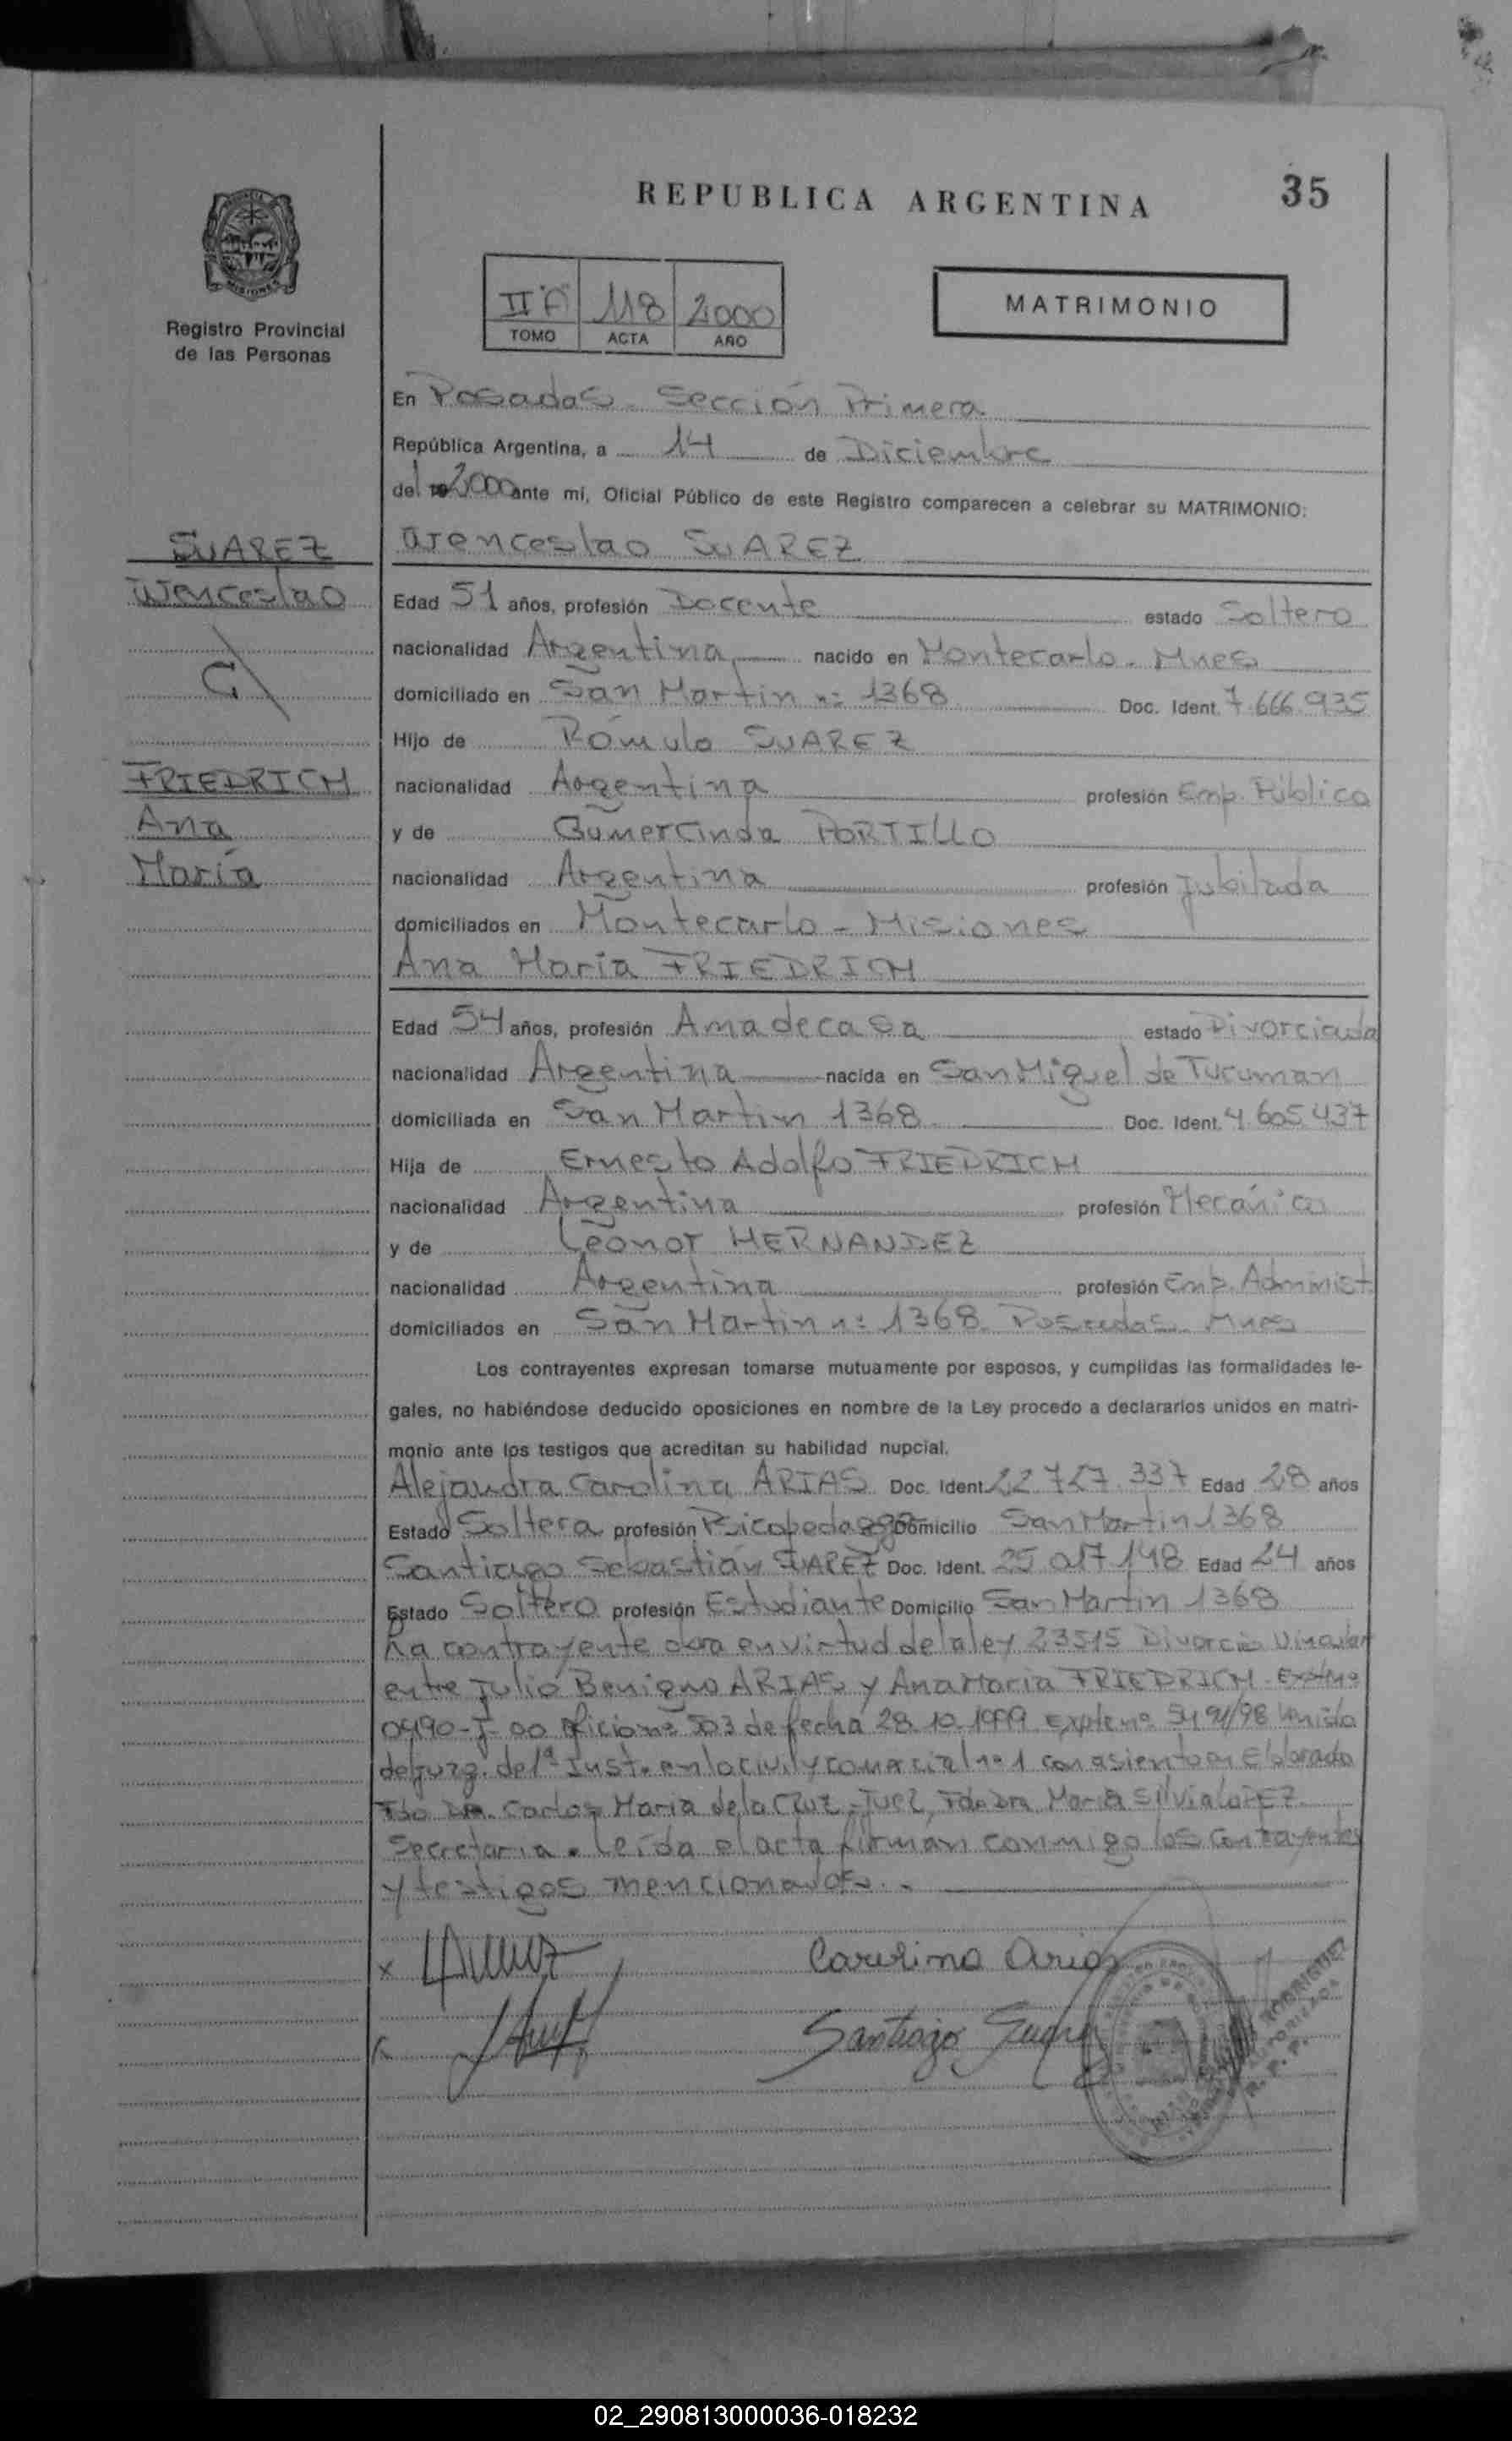 REPUBLICA ARGENTINA 35
MISIONES
Registro Provincial
de las Personas
II "A" 118 2000
TOMO ACTA AÑO
MATRIMONIO
En Posadas - Sección Primera
República Argentina, a 14 de Diciembre
del 2000 ante mí, Oficial Público de este Registro comparecen a celebrar su MATRIMONIO:
SUAREZ
Wenceslao
Wenceslao SUAREZ
Edad 51 años, profesión Docente estado Soltero
nacionalidad Argentina nacido en Montecarlo - Mnes
domiciliado en San Martin nº 1368 Doc. Ident. 7.666.935
Hijo de Rómulo SUAREZ
FRIEDRICH
Ana
María
nacionalidad Argentina profesión Emp. Público
y de Gumercinda PORTILLO
nacionalidad Argentina profesión Jubilada
domiciliados en Montecarlo - Misiones
Ana María FRIEDRICH
Edad 54 años, profesión Ama de casa estado Divorciada
nacionalidad Argentina nacida en San Miguel de Tucuman
domiciliada en San Martin 1368 Doc. Ident. 4.605.437
Hija de Ernesto Adolfo FRIEDRICH
nacionalidad Argentina profesión Mecánico
y de Leonor HERNANDEZ
nacionalidad Argentina profesión Emp. Administ
domiciliados en San Martin nº 1368 Posadas Mnes
Los contrayentes expresan tomarse mutuamente por esposos, y cumplidas las formalidades le-
gales, no habiéndose deducido oposiciones en nombre de la Ley procedo a declararlos unidos en matri-
monio ante los testigos que acreditan su habilidad nupcial.
Alejandra Carolina ARIAS Doc. Ident. 22.727.337 Edad 28 años
Estado Soltera profesión Psicopedagoga Domicilio San Martin 1368
Santiago Sebastián SUAREZ Doc. Ident. 25.017.148 Edad 24 años
Estado Soltero profesión Estudiante Domicilio San Martin 1368
La contrayente obra en virtud de la ley 23515 Divorcio Vincular
entre Julio Benigno ARIAS y Ana María FRIEDRICH. Expte nº
0490-J-00 Oficio nº 503 de fecha 28.10.1999 Expte nº 54 91/98 venido
del Juzg. de 1ª Inst. en lo civil y comercial nº 1 con asiento en Eldorado
Fdo Dr. Carlos Maria de la Cruz - Juez, Fdo Dra Maria Silvia LOPEZ
Secretaria. Leída el acta firman conmigo los contrayentes
y testigos mencionados.
Carolina Arias
Santiago Suarez
RODRIGUEZ
AUTORIZADA
R. P. P.
02_290813000036-018232